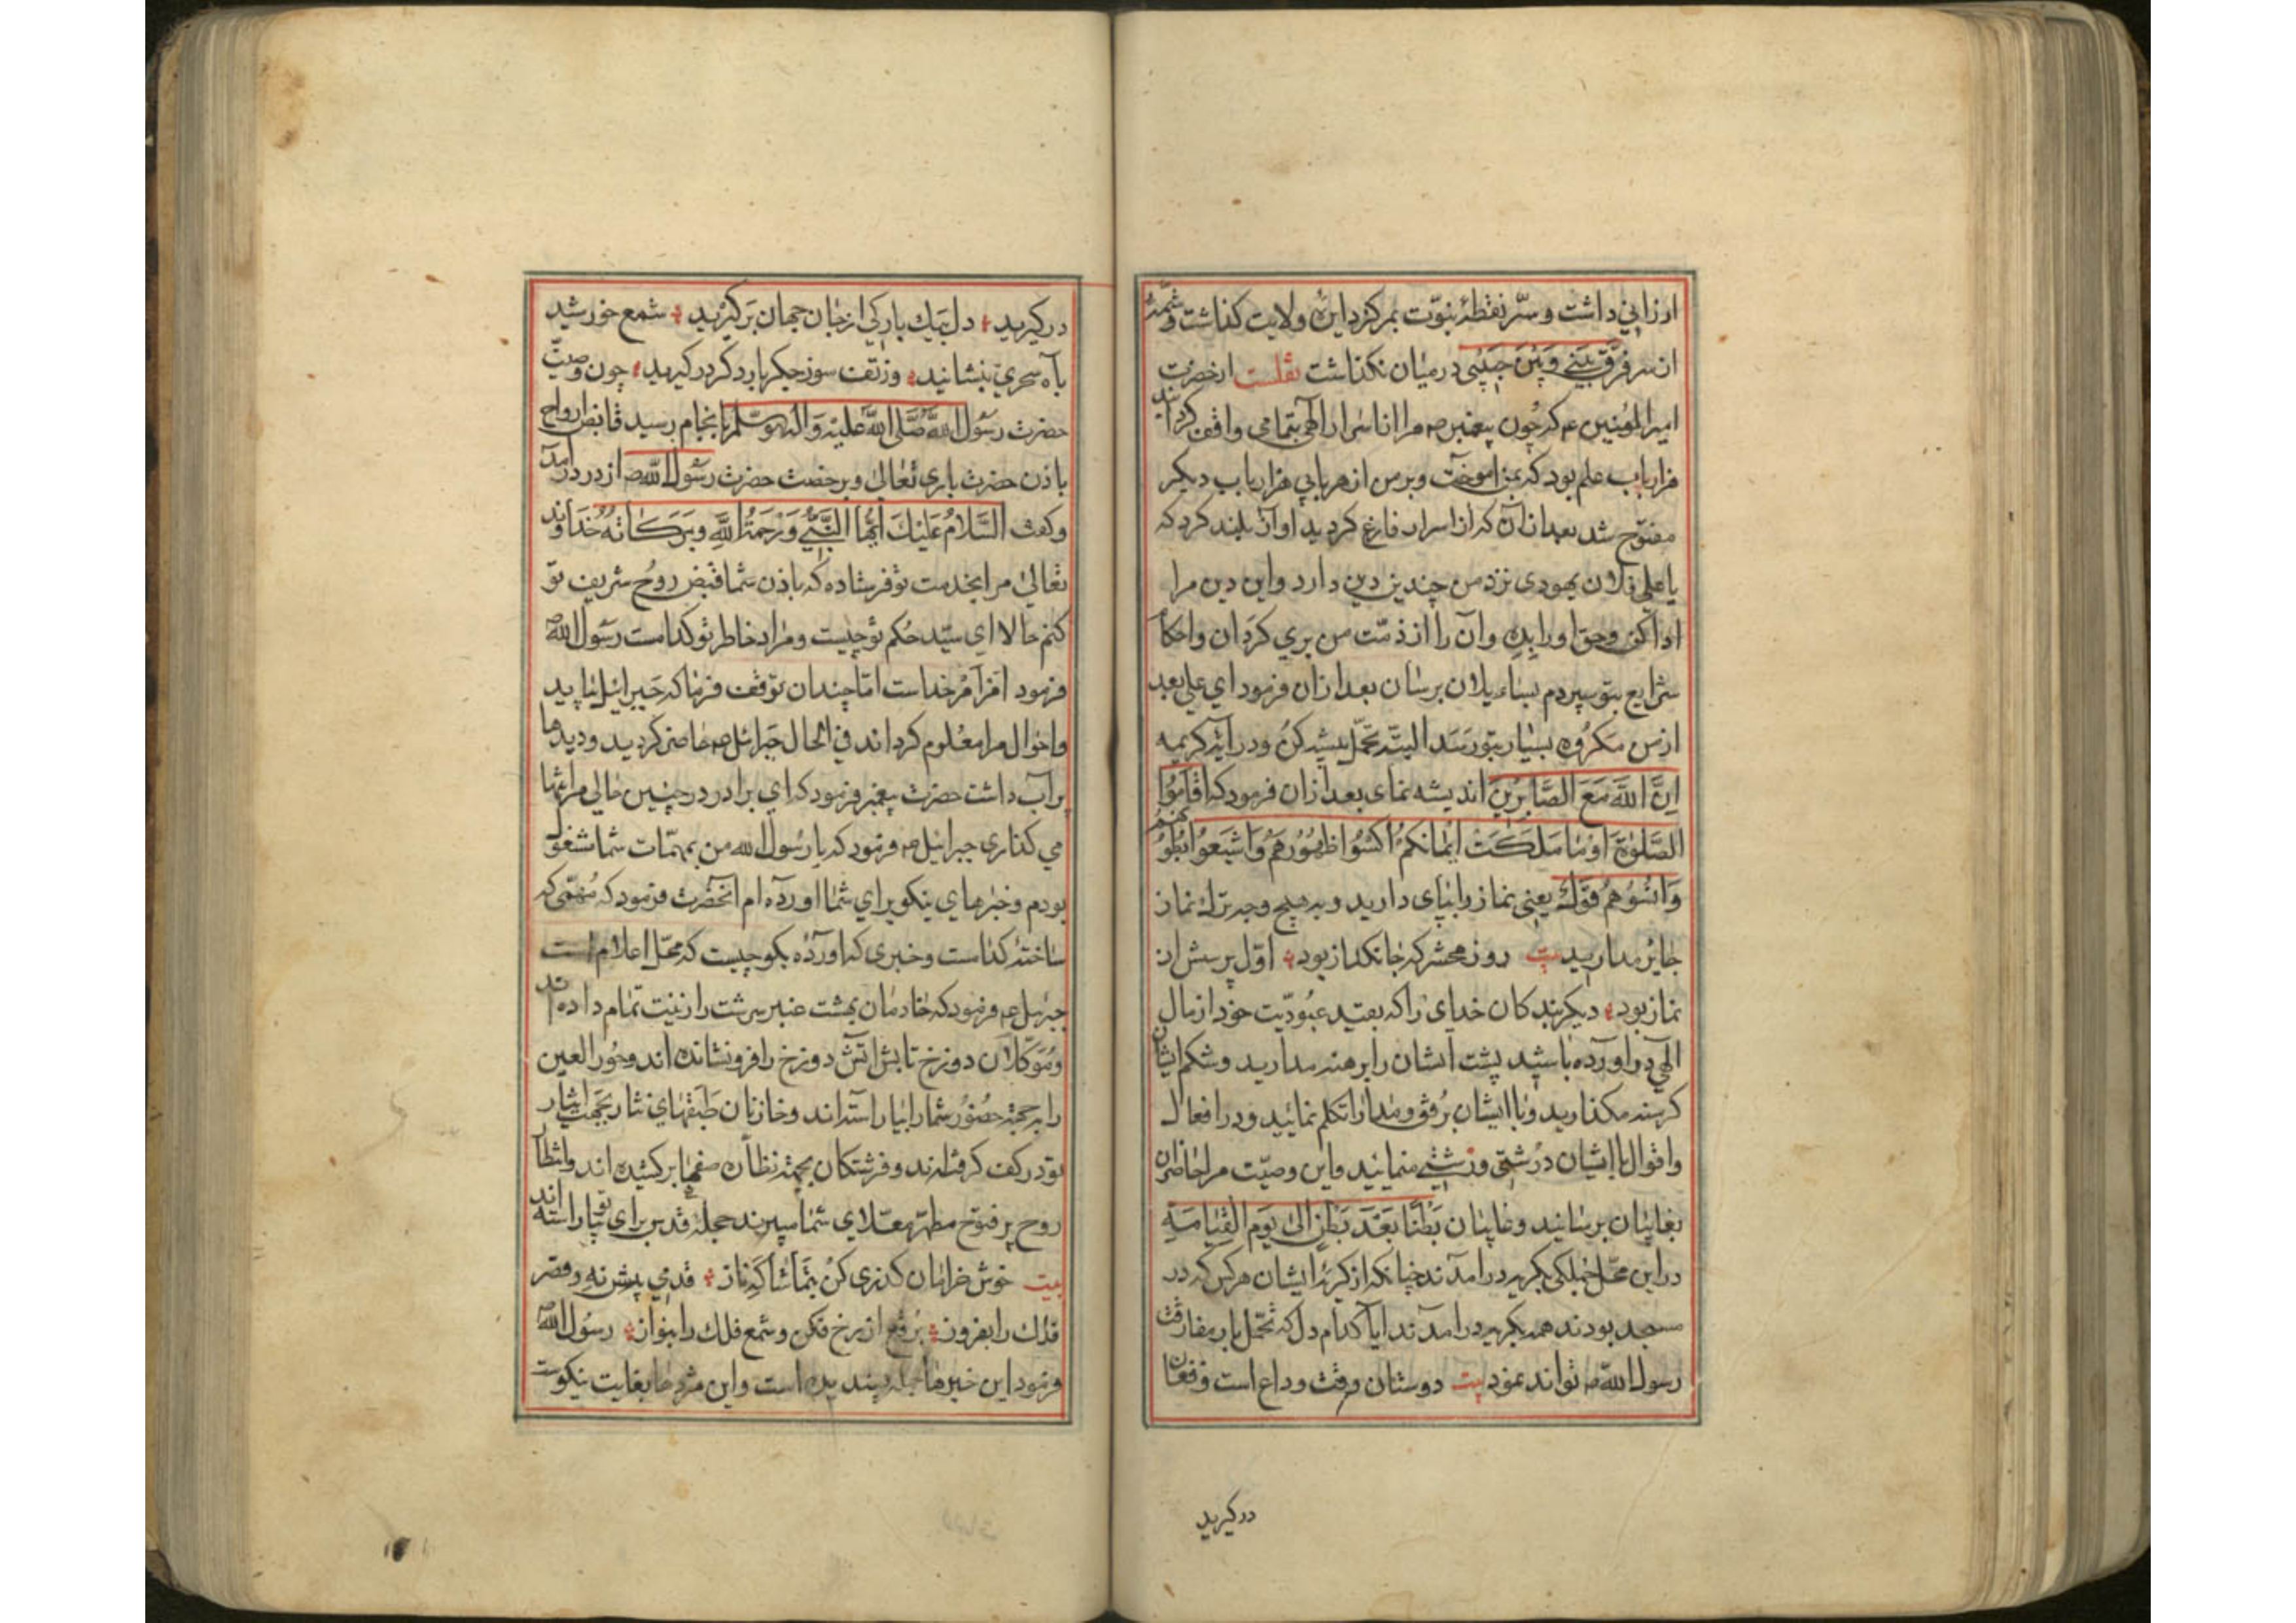 ارزانی داشت و سرّ نقطهٔ نبوّت بمرکز دایرهٔ ولایت کذاشت و شمّهٔ
از سر فَرَّق بَینی وَبَیْنَ حَبیبی درمیان نکذاشت نقلست ازحضرت
امیرالمؤمنین عم که چون پیغمبر صم مرا از اسرار الهی بتمامی واقف کردانید
هزار باب علم بود که بمن اموخت وبرمن از هر بابی هزار باب دیکر
مفتوح شد بعد ازان که از اسرار فارغ کردید اواز بلند کرد که
یا علی فلان یهودی نزد من چندین دین دارد واین دین مرا
ادا کن وحق اورا بده وآن را از ذمّت من بری کردان واحکام
شرایع بتو سپردم بساء یلان برسان بعد ازان فرمود ای علی بعد
ازمن مکروه بسیار بتو رسد البته تحمّل پیشه کن ودر آیه کریمه
اِنَّ اللَّهَ مَعَ الصَّابِرِینَ اندیشه نمای بعد ازان فرمود که اقاموا
الصَّلوٰةَ اَوْ مَا مَلَکَتْ اَیْمَانُکُمْ اکسُوا ظهُورَهُم وَاشبَعُوا بُطُونَهُم
وَ قولَ یعنی نماز را بپای دارید وبه هیچ وجه ترك نماز
جایز مدارید بیت روز محشر که جانکداز بود اوّل پرسش از
نماز بود دیکر بندکان خدای را که بقید عبودیّت خود از مال
الهی در اورده باشید پشت ایشان را برهنه مدارید وشکم ایشان
کرسنه مکذارید وبا ایشان برفق ومدارا تکلم نمائید ودر افعال
واقوال باایشان درشتی وزشتی منمائید واین وصیّت مرا حاضران
بغایبان برسانید وغایبان بَطْنًا بَعْدَ بَطْنٍ الیٰ یَومِ القِیَامَةِ
دراین محل جملکی بکریه درامدند چنانکه از کریهٔ ایشان هرکس که در
مسجد بودند همه بکریه درامدند ایا کدام دل که تحمّل بار مفارقت
رسول الله صم تواند نمود بیت دوستان وقت وداع است وفغان
درکیرید
درکیرید دل بیك بارکی از جان جهان برکیرید شمع خورشید
بآه سحری بنشانید وز تف سوز جکر بار دکر درکیرید چون وصیّت
حضرت رسُول اللّه صَلَّی اللّهُ عَلَیْهِ وَآلِهِ وَسَلَّم بانجام رسید قابض ارواح
باذن حضرت باری تعالیٰ وبرخصت حضرت رسُول اللّه صم از در درآمد
وکفت السَّلامُ عَلَیْكَ اَیُّهَا النَّبِیُّ وَرَحمَةُ اللَّهِ وبَرَکَاتُهُ خداوند
تعالیٰ مرا بخدمت تو فرستاده که باذن شما قبض روح شریف تو
کنم حالا ای سیّد حُکم تو چیست ومراد خاطر تو کدامست رسول اللّه صم
فرمود امر امر خداست امّا چندان توقف فرما که جبرائیل بیاید
واحوال مرا معلوم کرداند فی الحال جبرائیل صم حاضر کردید ودیدها
پرآب داشت حضرت پیغمبر فرمود که ای برادر درچنین حالی مرا تنها
می کذاری جبرائیل صم فرمود که یا رسول اللّه من بمهمّات شما مشغول
بودم وخبرهای نیکو برای شما اورده ام آنحضرت فرمود که مُهمّی که
ساختهٔ کدامست وخبری که اوردهٔ بکو چیست که محل اعلام است
جبرئیل عم فرمود که خادمان بهشت عنبر سرشت را زینت تمام داده اند
ومُوَکّلان دوزخ تابش اتش دوزخ را فرونشانده اند وحورالعین
را بجههٔ حضور شما را بیاراسته اند وخازنان طبقهای نثار بجهت ایثار
تو در کف کرفته اند وفرشتکان بجههٔ نظاره صفها برکشیده اند وانتظار
روح پرفتوح مطهر معلای شما میبرند حجلهٔ قدس برای تو بیاراسته اند
بیت خوش خرامان کذری کن بتماشاکه ناز قدمی پیش نه وقصر
فلك را بفروز برقع از رخ فکن وشمع فلك را بنواز رسُول اللّه صم
فرمود این خبرها جمله پسندیده است واین مژدها بغایت نیکوست